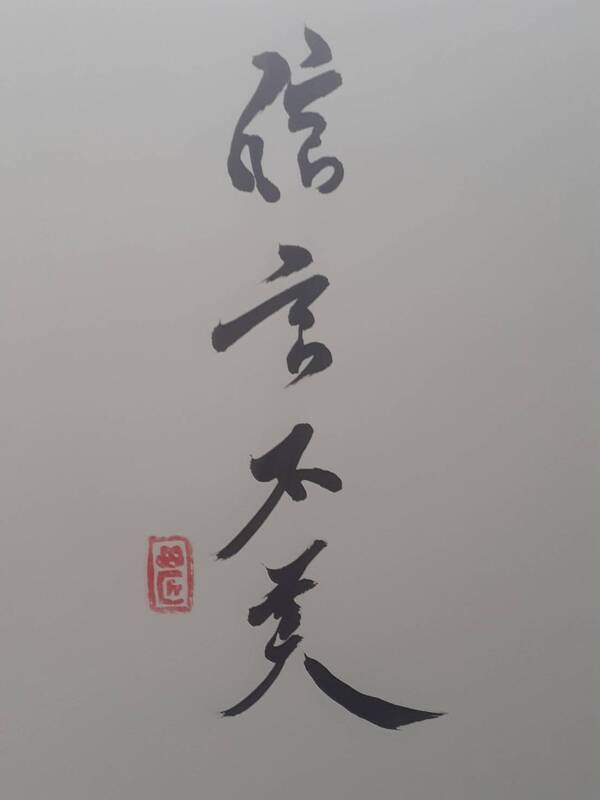 信言不美